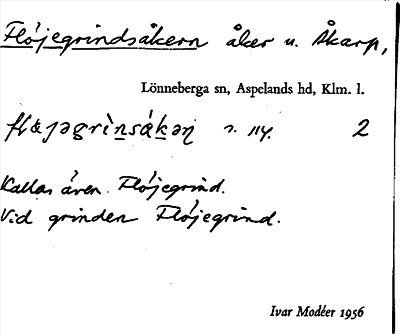 Fløjegrindsåkern åker u. Åkarp,
Lönneberga sn, Aspelands hd, Klm. l.
2
Kallas även Fløjegrind.
Vid grinden Fløjegrind.
Ivar Modéer 1956